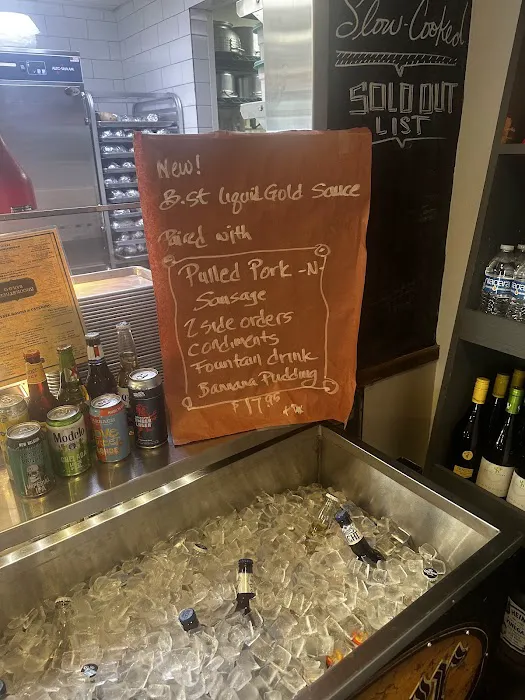 Slow-Cooked
SOLD OUT
LIST
New!
B.st Liquid Gold Sauce
Paired with
Pulled Pork -N-
Sausage
2 side orders
Condiments
Fountain drink
Bannana Pudding
$17.95 + tax
Modelo
niagara